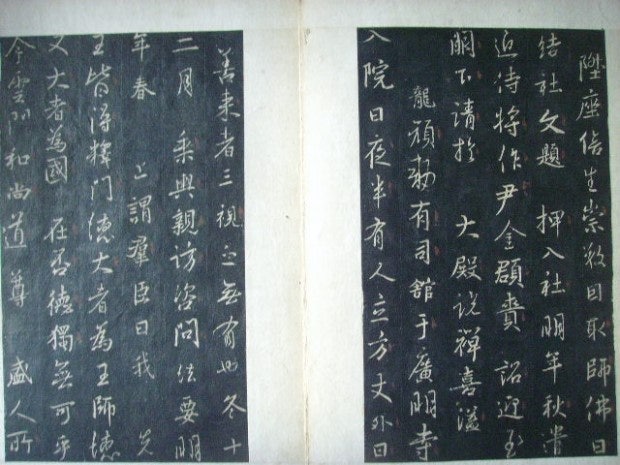 陞座倍生崇敬因取師佛日
結社文題 押入社明年秋遣
近侍將作尹金頵賚 詔迎至
闕下請於 大殿說禪喜溢
龍顏勅有司舘于廣明寺
入院日夜半有人立方丈外曰
善来者三視之無有也冬十
二月 乘輿親訪咨問法要明
年春 上謂羣臣曰我 先
王皆得釋門德大者為王師德
又大者為國 在否德獨無可乎
今雲門和尚道尊 盛人所